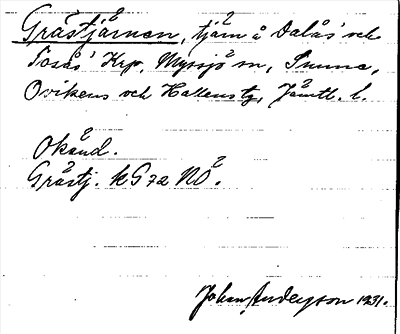 Gråstjärnen, tjärn å Dalås' och
Tosås' Krp, Myssjö sn, Sunne,
Ovikens och Hallens tg, Jämtl. l.
Okänd.
Gråstj. kG 72 NÖ.
Johan Anderzson 1931.